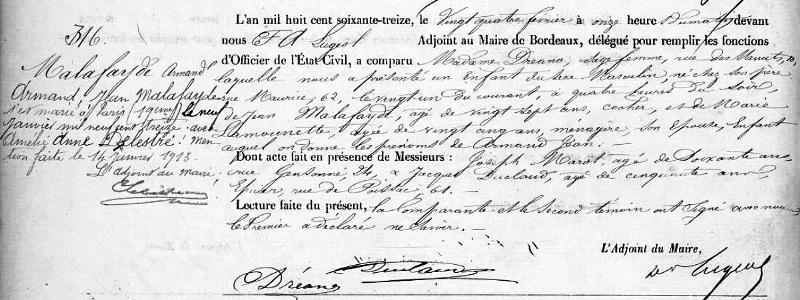 316.
Malafayde Armand
Armand, Jean Malafayde
s'est marié à Paris
(19eme) le neuf
Janvier mil neuf cent treize avec
Amélie Anne Delestre: Men
tion faite le 14 Janvier 1913.
L'adjoint au maire
L'an mil huit cent soixante-treize, le vingt quatre février à onze heure Du matin devant
nous F A Sugest Adjoint au Maire de Bordeaux, délégué pour remplir les fonctions
d'Officier de l'État Civil, a comparu Madame Dréano, sage femme, rue des 10,
laquelle nous a présenté un Enfant du sexe Masculin né chez son père
rue Maurice, 62, le vingt un du courant, à quatre heures du soir,
de Jean Malafayde, agé de vingt sept ans, cocher, et de Marie
Lamounette, agée de vingt cinq ans, menagère, son Epouse, Enfant
auquel on donne les prénoms de Armand Jean.
Dont acte fait en présence de Messieurs : Joseph Marot, agé de soixante ans
rue Gensonné, 24, & Jacques Duclaud, agé de cinquante ans
Epicier, rue de 61.
Lecture faite du présent, la Comparante et le Second temoin ont Signé avec nous
le Premier a déclaré ne Savoir.
L'Adjoint du Maire,
Dréano Duclaud